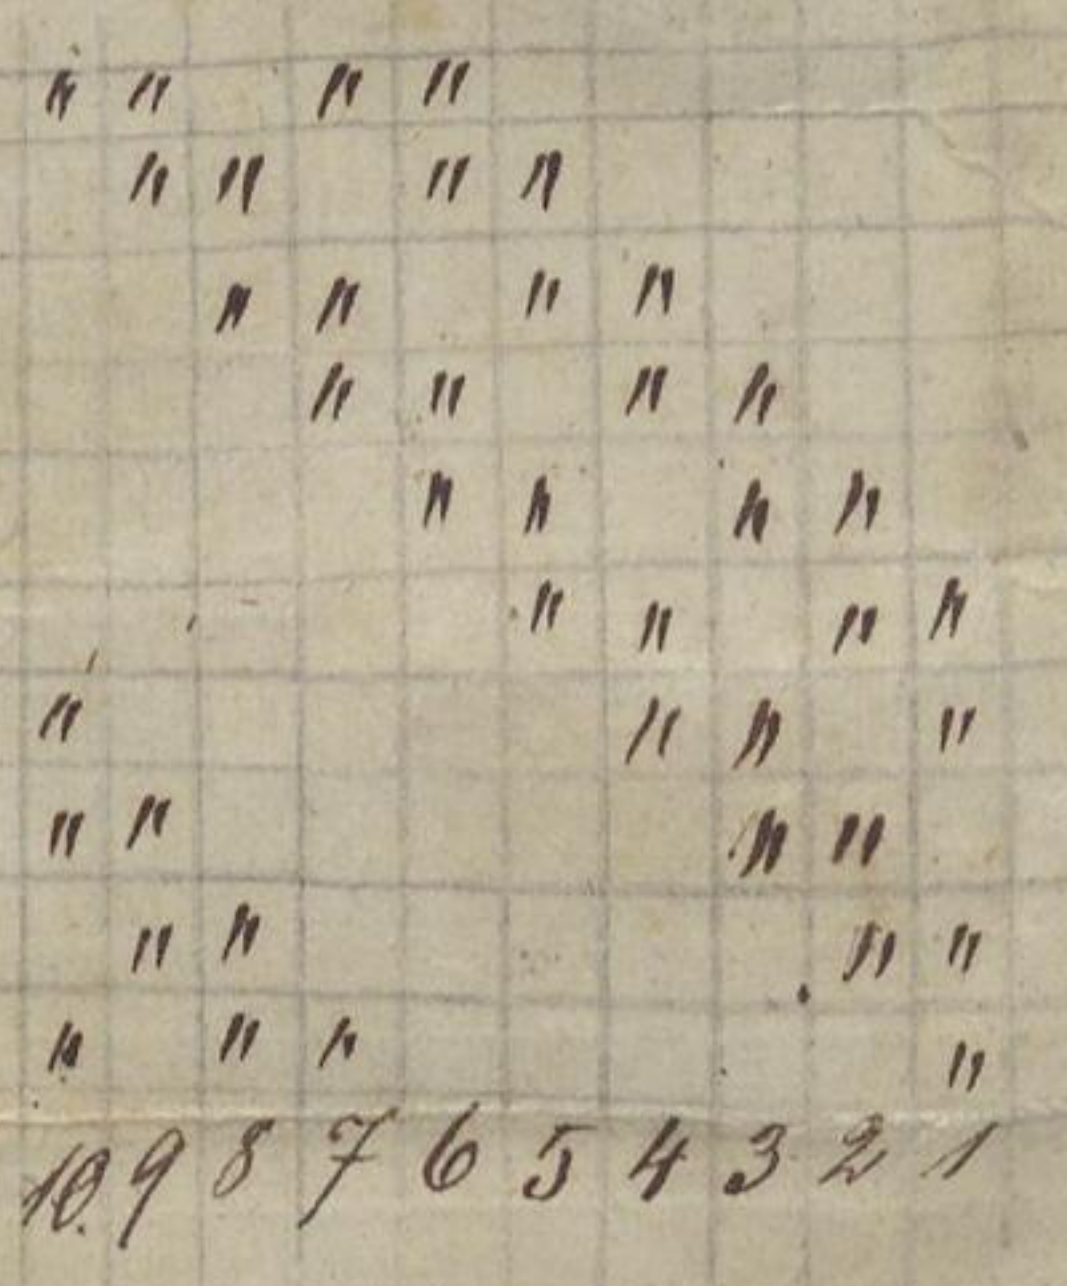 " " " "
" " " "
" " " "
" " " "
" " " "
" " " "
" " " "
" " " "
" " " "
" " " "
10. 9 8 7 6 5 4 3 2 1